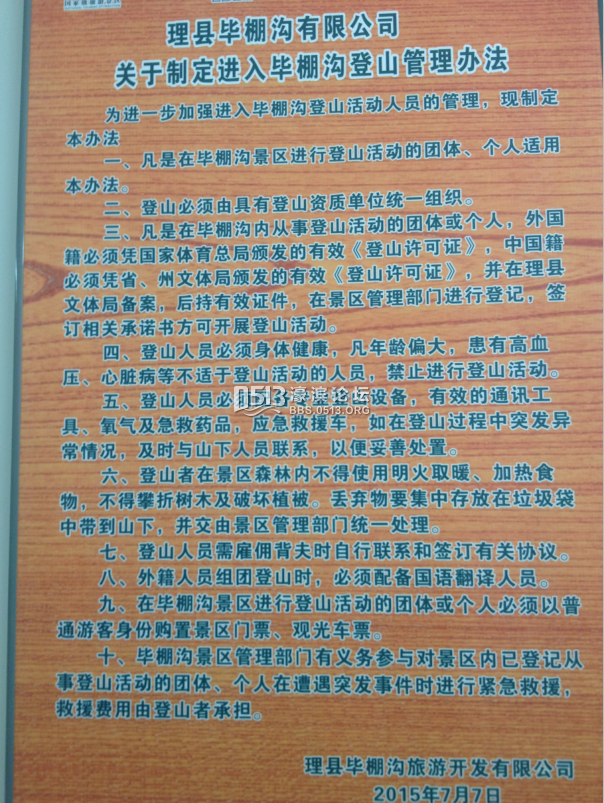 理县毕棚沟有限公司
关于制定进入毕棚沟登山管理办法
为进一步加强进入毕棚沟登山活动人员的管理，现制定
本办法
一、凡是在毕棚沟景区进行登山活动的团体、个人适用
本办法。
二、登山必须由具有登山资质单位统一组织。
三、凡是在毕棚沟内从事登山活动的团体或个人，外国
籍必须凭国家体育总局颁发的有效《登山许可证》，中国籍
必须凭省、州文体局颁发的有效《登山许可证》，并在理县
文体局备案，后持有效证件，在景区管理部门进行登记，签
订相关承诺书方可开展登山活动。
四、登山人员必须身体健康，凡年龄偏大，患有高血
压、心脏病等不适于登山活动的人员，禁止进行登山活动。
五、登山人员必须 设备，有效的通讯工
具、氧气及急救药品，应急救援车，如在登山过程中突发异
常情况，及时与山下人员联系，以便妥善处置。
六、登山者在景区森林内不得使用明火取暖、加热食
物，不得攀折树木及破坏植被。丢弃物要集中存放在垃圾袋
中带到山下，并交由景区管理部门统一处理。
七、登山人员需雇佣背夫时自行联系和签订有关协议。
八、外籍人员组团登山时，必须配备国语翻译人员。
九、在毕棚沟景区进行登山活动的团体或个人必须以普
通游客身份购置景区门票、观光车票。
十、毕棚沟景区管理部门有义务参与对景区内已登记从
事登山活动的团体、个人在遭遇突发事件时进行紧急救援，
救援费用由登山者承担。
理县毕棚沟旅游开发有限公司
2015年7月7日
0513 濠滨论坛
BBS.0513.ORG